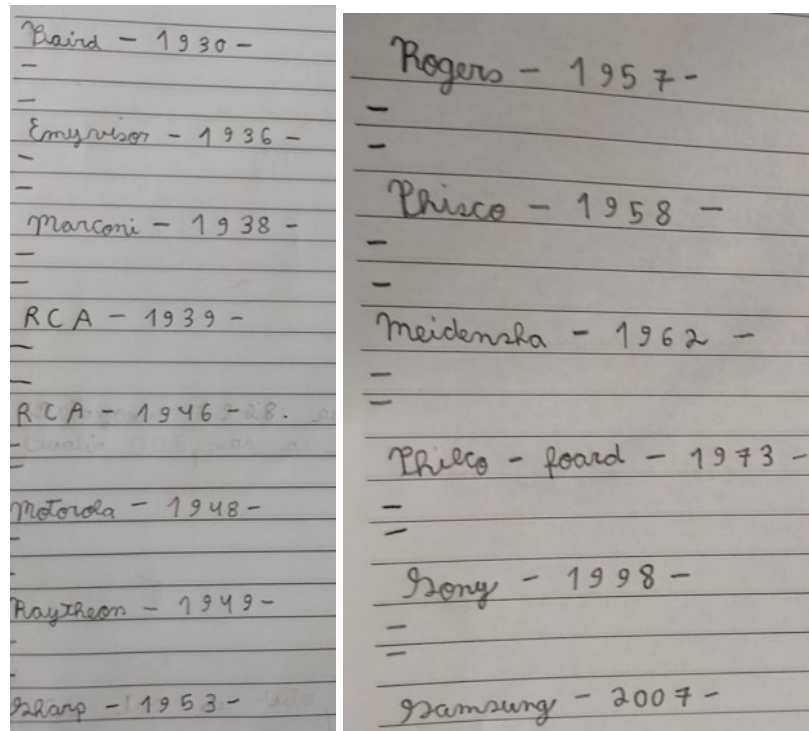 Baird - 1930 -
-
-
Emyvisor - 1936 -
-
-
Marconi - 1938 -
-
-
RCA - 1939 -
-
-
RCA - 1946 - 28.
-
-
Motorola - 1948 -
-
-
Raytheon - 1949 -
-
-
Sharp - 1953 -
Rogers - 1957 -
-
-
Phisco - 1958 -
-
-
Meidensha - 1962 -
-
-
Philco - foard - 1973 -
-
-
Sony - 1998 -
-
-
Samsung - 2007 -